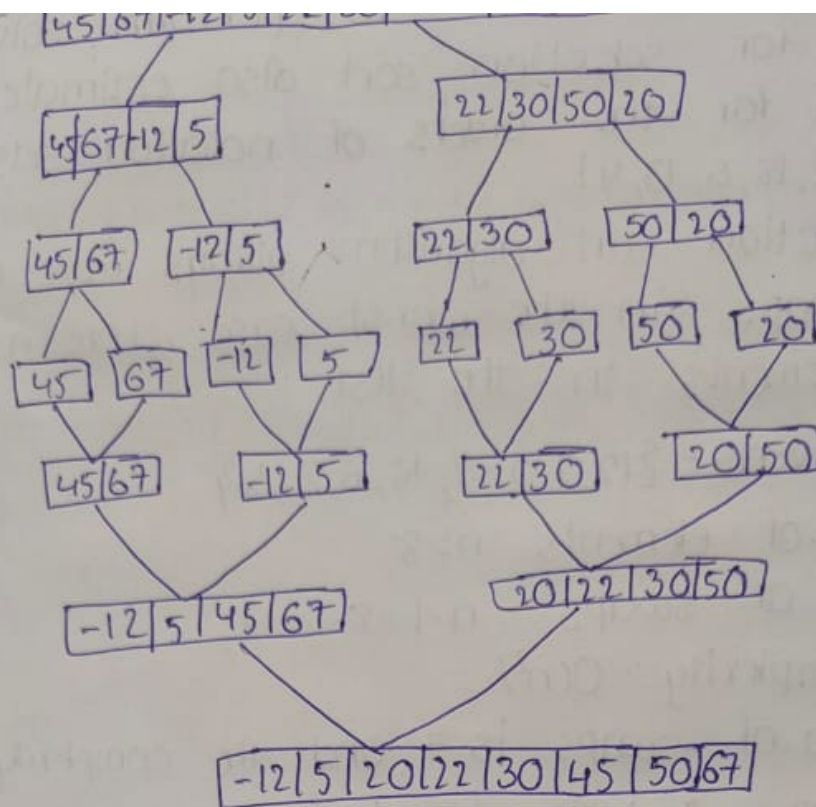 45|67|-12|5|22|30
45|67|-12|5 22|30|50|20
45|67 -12|5 22|30 50|20
45 67 -12 5 22 30 50 20
45|67 -12|5 22|30 20|50
-12|5|45|67 20|22|30|50
-12|5|20|22|30|45|50|67